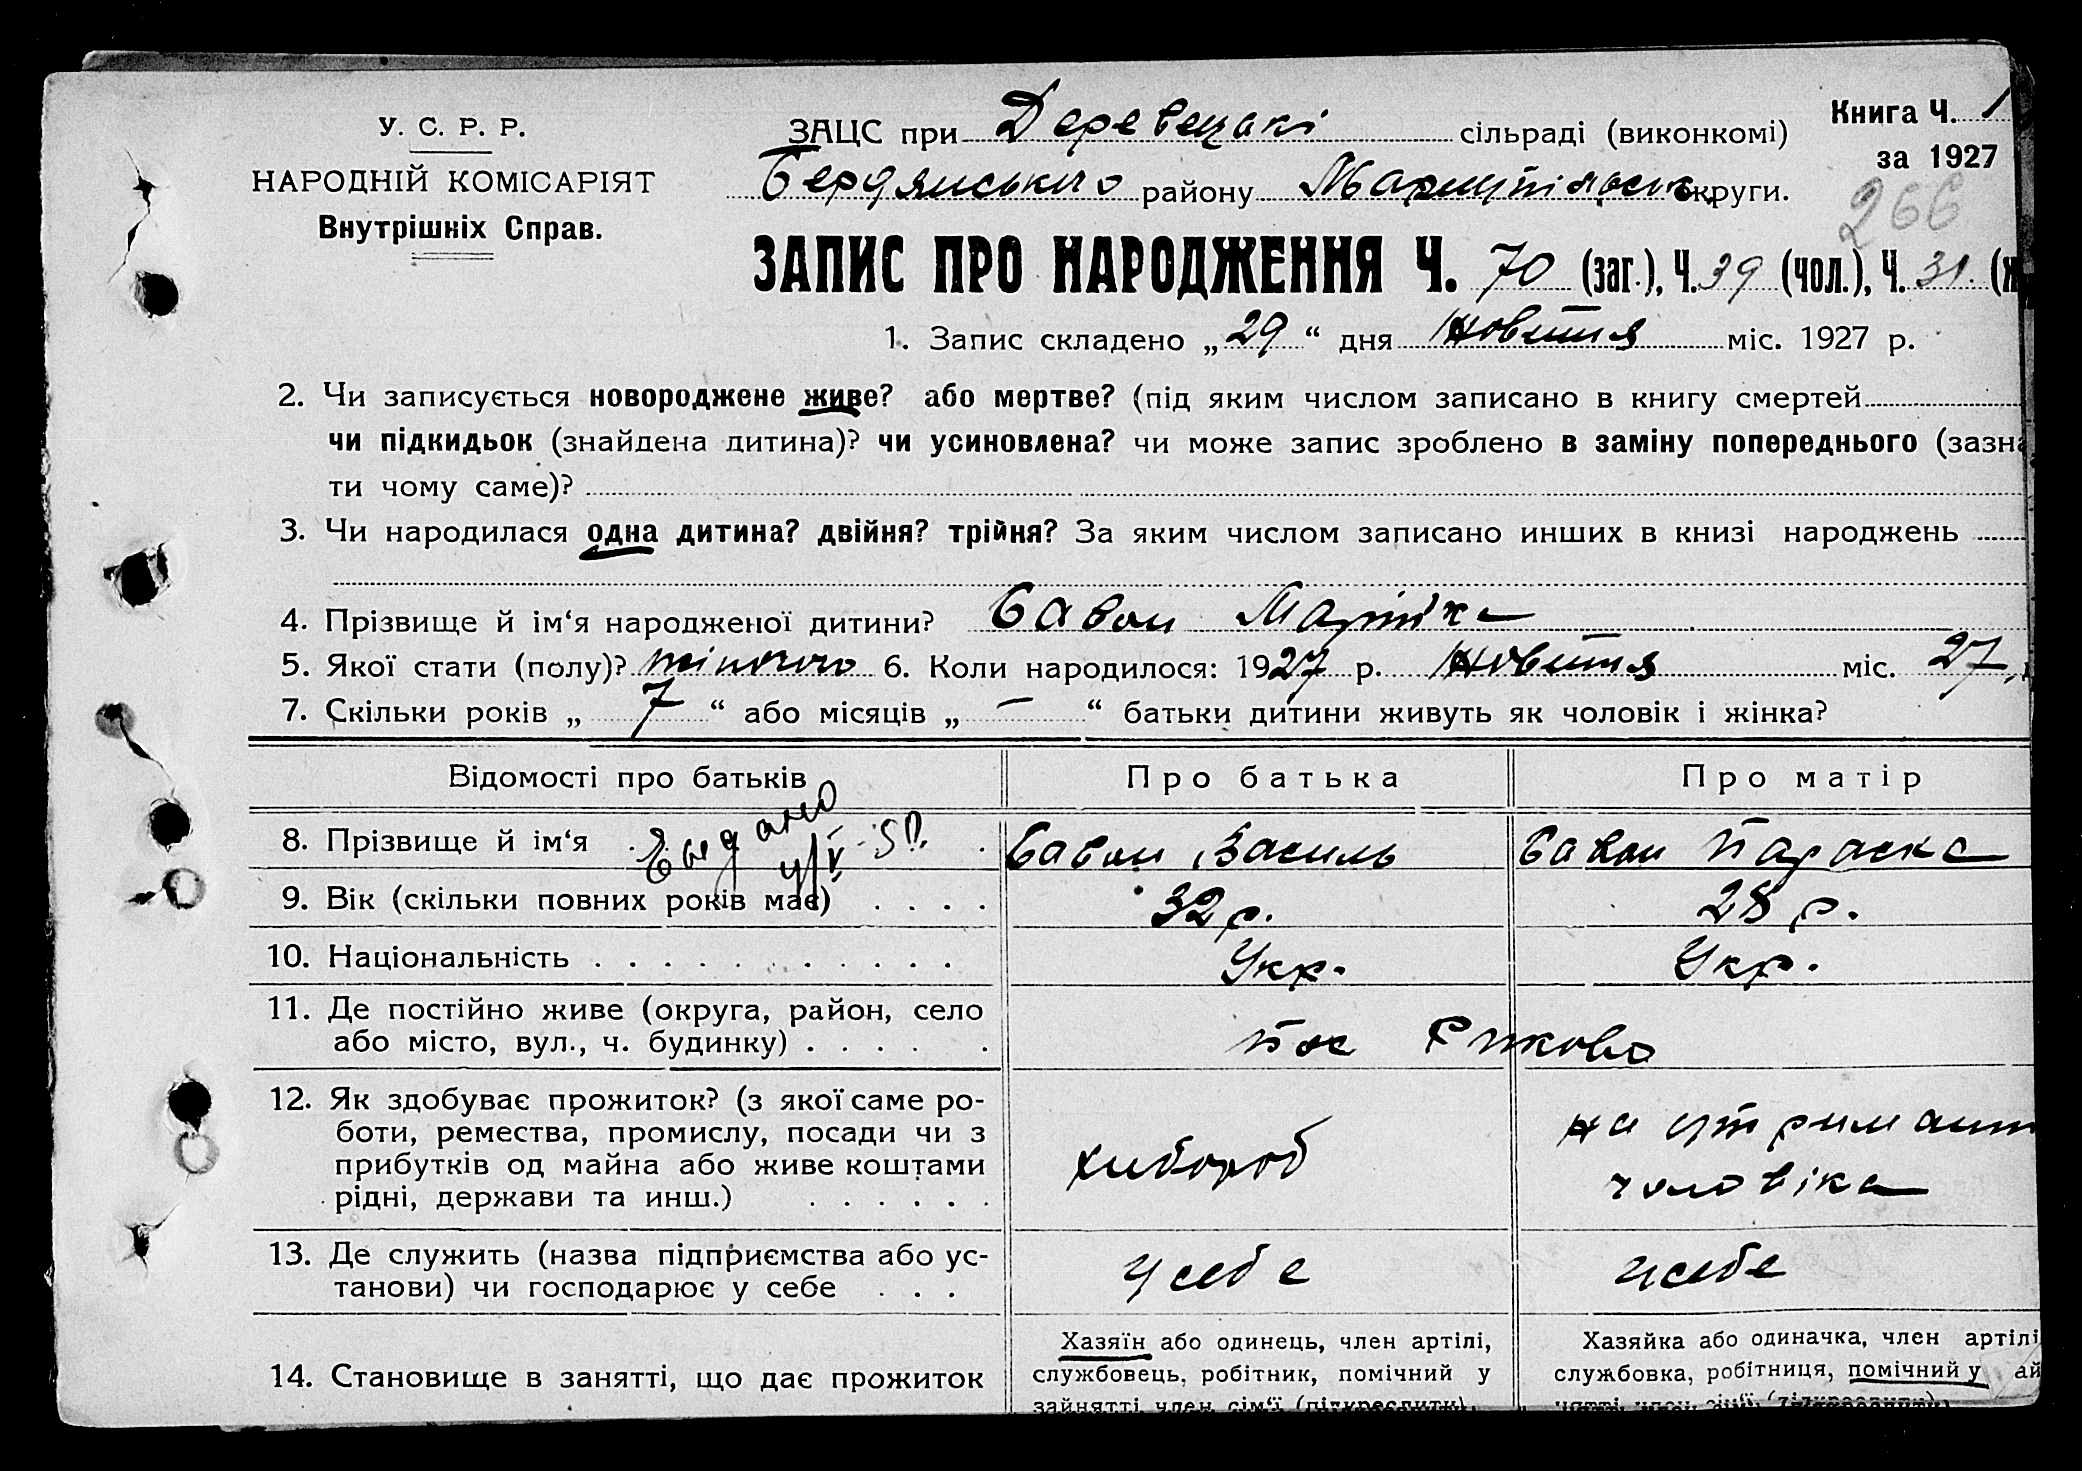 У. С. Р. Р.
НАРОДНІЙ КОМІСАРІЯТ
Внутрішніх Справ.
Книга Ч. 1
за 1927
266
ЗАЦС при Деревецькі сільраді (виконкомі)
Бердянського району Маріупільськ. округи.
ЗАПИС ПРО НАРОДЖЕННЯ Ч. 70 (заг.), Ч. 39 (чол.), Ч. 31. (ж
1. Запис складено „29“ дня Жовтня міс. 1927 р.
2. Чи записується новороджене живе? або мертве? (під яким числом записано в книгу смертей
чи підкидьок (знайдена дитина)? чи усиновлена? чи може запис зроблено в заміну попереднього (зазна
ти чому саме)?
3. Чи народилася одна дитина? двійня? трійня? За яким числом записано инших в книзі народжень
4. Прізвище й ім‘я народженої дитини? Бабаи
5. Якої стати (полу)? жіночого 6. Коли народилося: 1927 р. Жовтня міс. 27,
7. Скільки років „7“ або місяців „—“ батьки дитини живуть як чоловік і жінка?
Відомості про батьків
Про батька
Про матір
8. Прізвище й ім‘я
Выдано
Василь
Параска
9. Вік (скільки повних років має)
32 р.
28 р.
10. Національність
Укр.
Укр.
11. Де постійно живе (округа, район, село
або місто, вул., ч. будинку)
пос Риково
12. Як здобуває прожиток? (з якої саме ро-
боти, ремества, промислу, посади чи з
прибутків од майна або живе коштами
рідні, держави та инш.)
хлібороб
на утриманні
чоловіка
13. Де служить (назва підприємства або ус-
танови) чи господарює у себе
у себе
у себе
14. Становище в занятті, що дає прожиток
Хазяїн або одинець, член артілі,
службовець, робітник, помічний у
зайнятті член сім‘ї (підкреслити).
Хазяйка або одиначка, член артілі
службовка, робітниця, помічний у ай
нятті член сім‘ї (підкреслити)